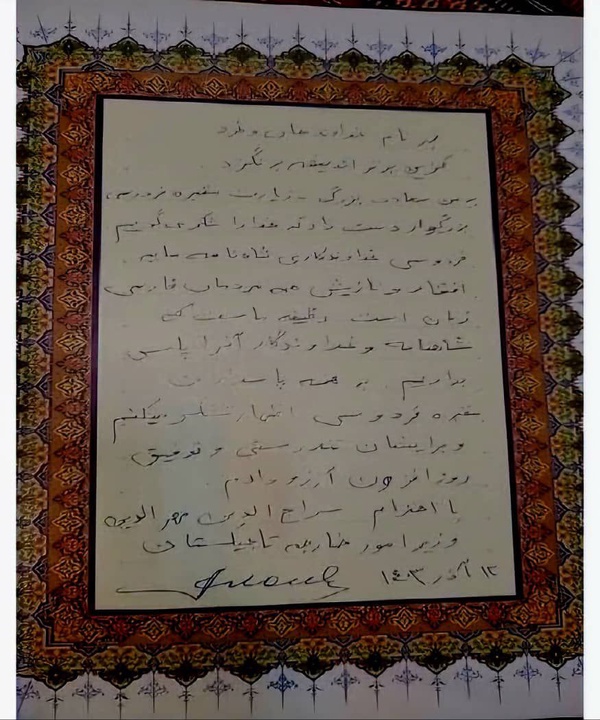 به نام خداوند جان و خرد
کزین برتر اندیشه برنگذرد
بر من سعادت بزرگ زیارت مقبره فردوسی
بزرگوار دست داد که خدا را شکر می‌گوییم
فردوسی خداوندگاری شاهنامه مایه
افتخار و نازیش همه مردمان فارسی
زبان است وظیفه ماست که
شاهنامه و خداوندگار آنرا پاس
بداریم. به همه پاسداران
مقبره فردوسی اظهار تشکر میکنم
و برایشان تندرستی و توفیق
روزافزون آرزو دارم
با احترام سراج الدین مهرالدین
وزیر امور خارجه تاجیکستان
۱۲ آذر ۱۴۰۳